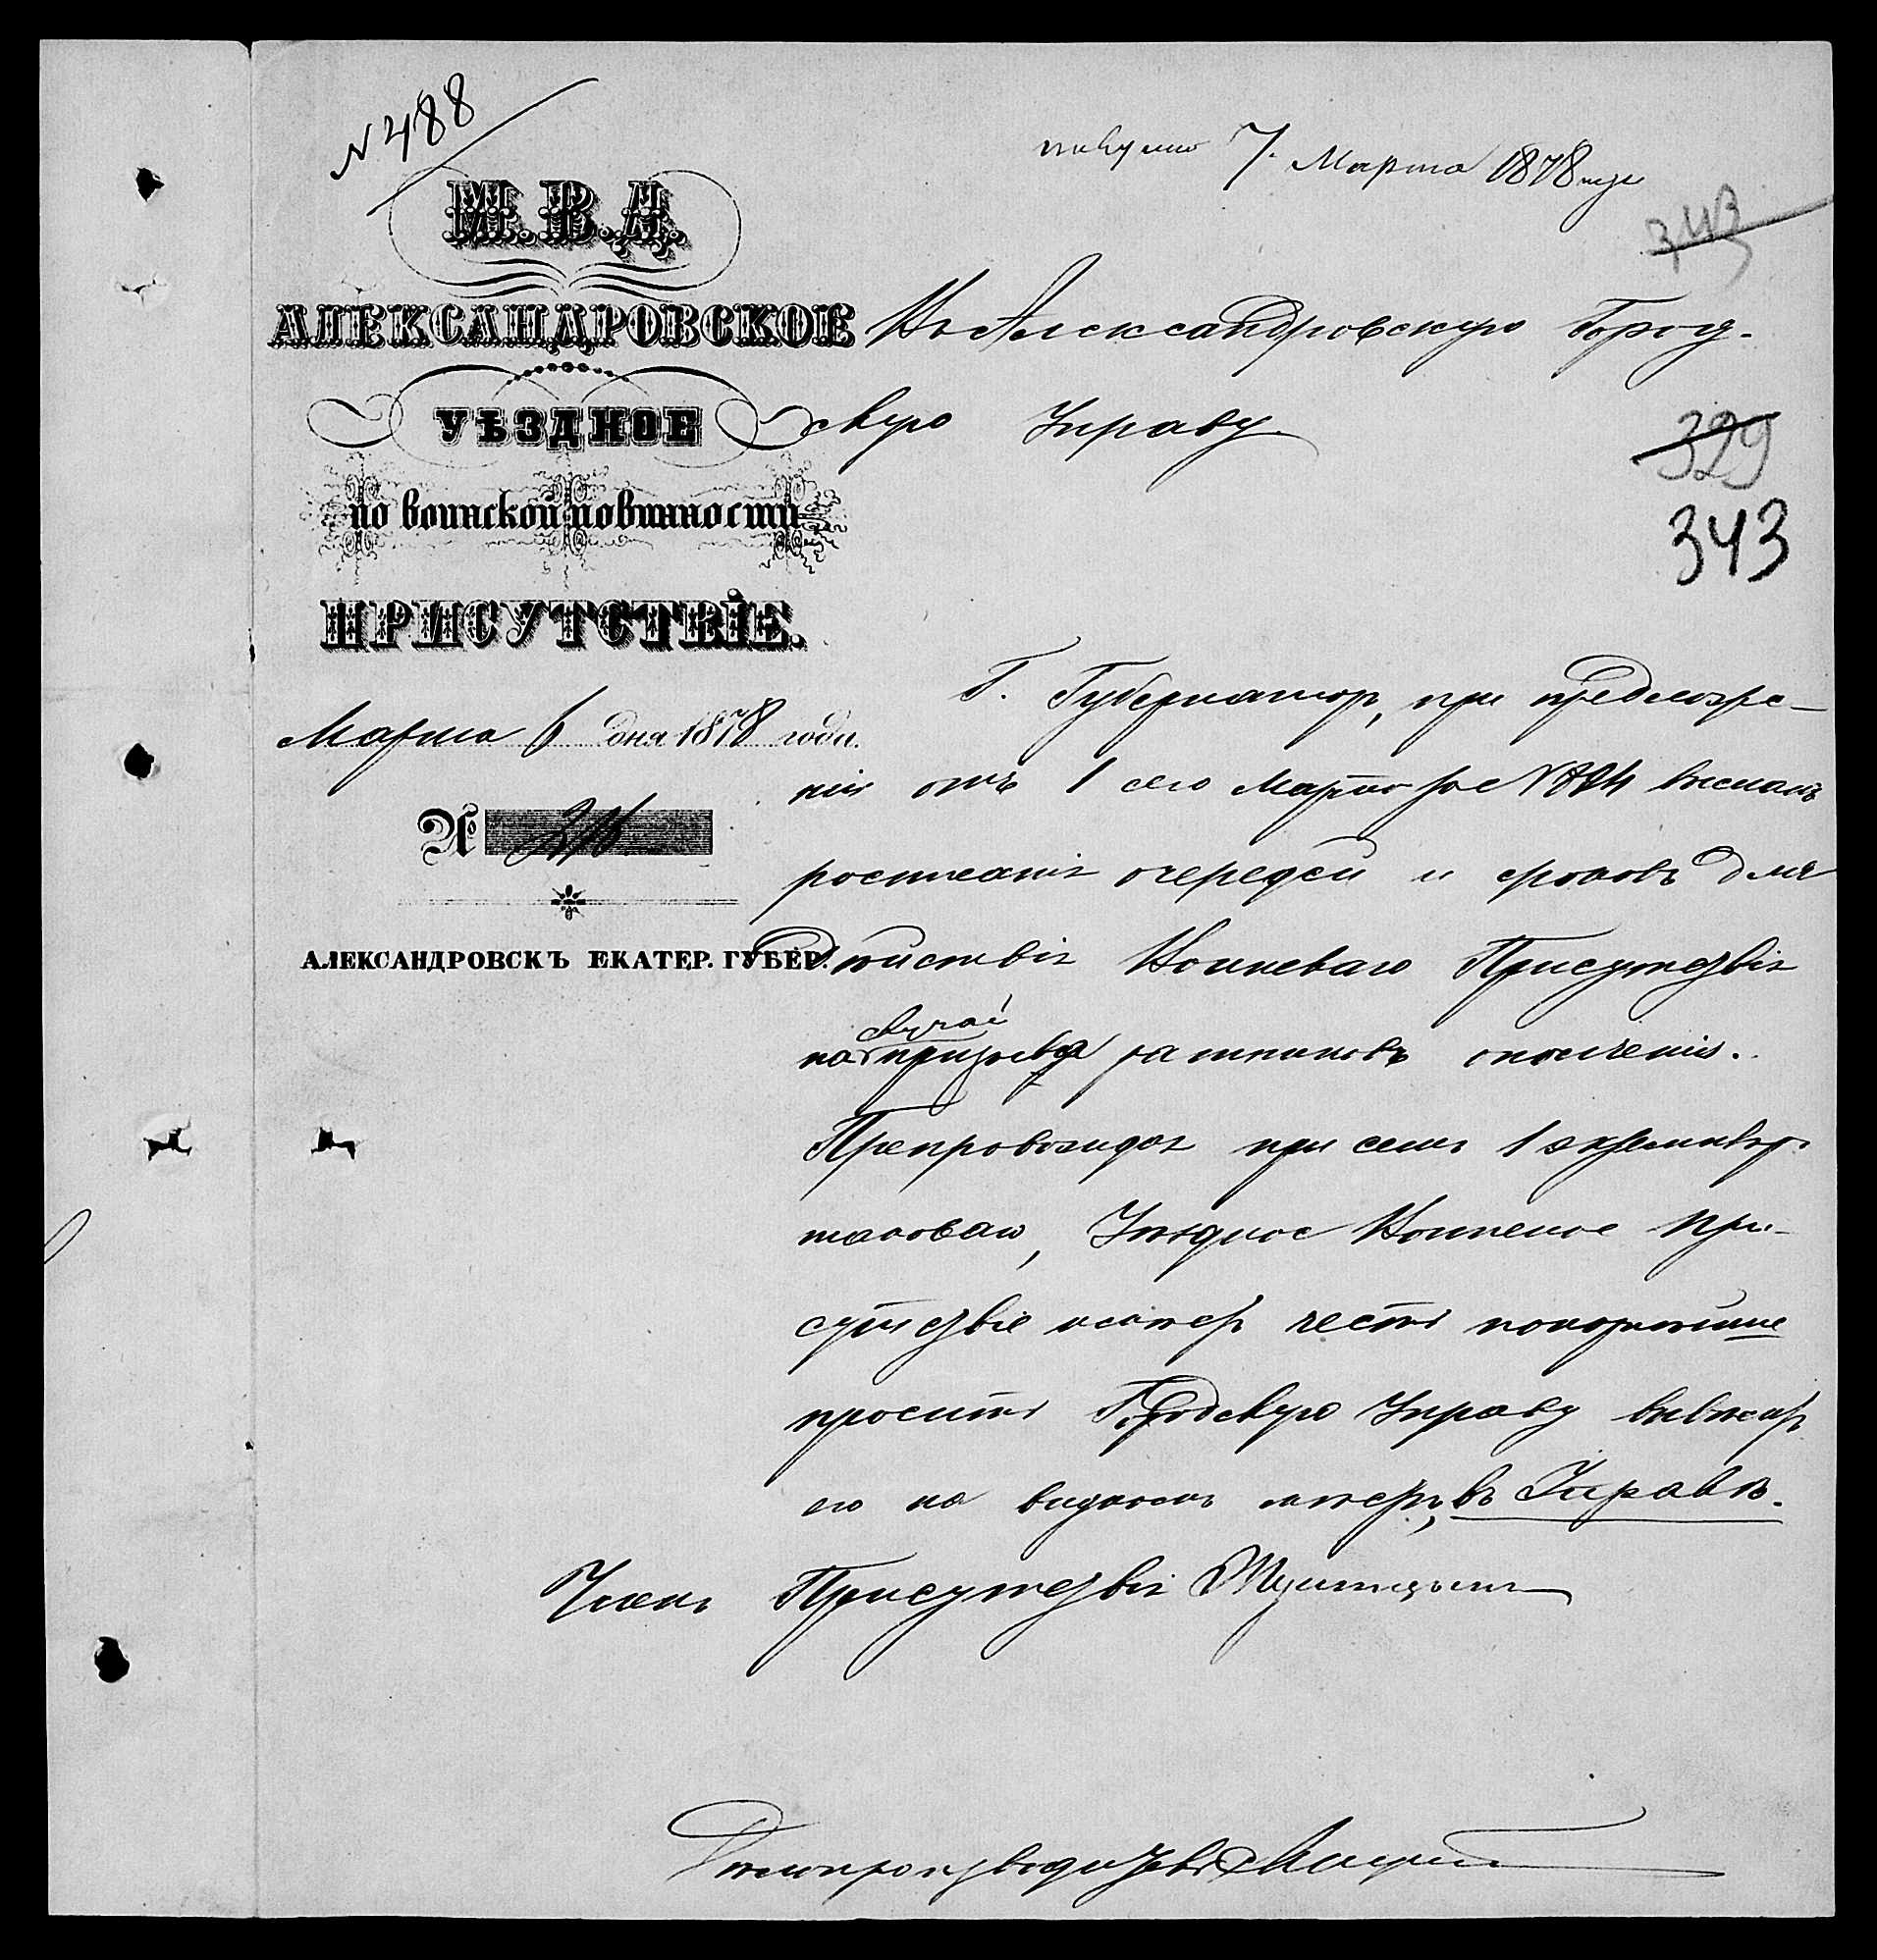 N 488
получено 7. Марта 1878 года
343
М.В.Д.
АЛЕКСАНДРОВСКОЕ
УѢЗДНОЕ
по воинской повинности
ПРИСУТСТВІЕ.
Марта 6 дня 1878 года.
№
АЛЕКСАНДРОВСКЪ ЕКАТЕР. ГУБЕР.
Въ Александровскую Город-
скую Управу
329
343
Г. Губернаторъ, при предложе-
ніи отъ 1 сего Марта за N 824 выслалъ
росписаніе очередей и сроковъ для
дѣйствія Коннаго Присутствія
на случай призыва ратниковъ ополченія.
Препровождая при семъ 1 экземпляръ
таковаго, Уѣздное Присутствіе
имѣетъ честь покорнѣйше
просить Городскую Управу вывѣсить
его на видномъ мѣстѣ, въ Управѣ.
Членъ Присутствія
Дѣлопроизводитель